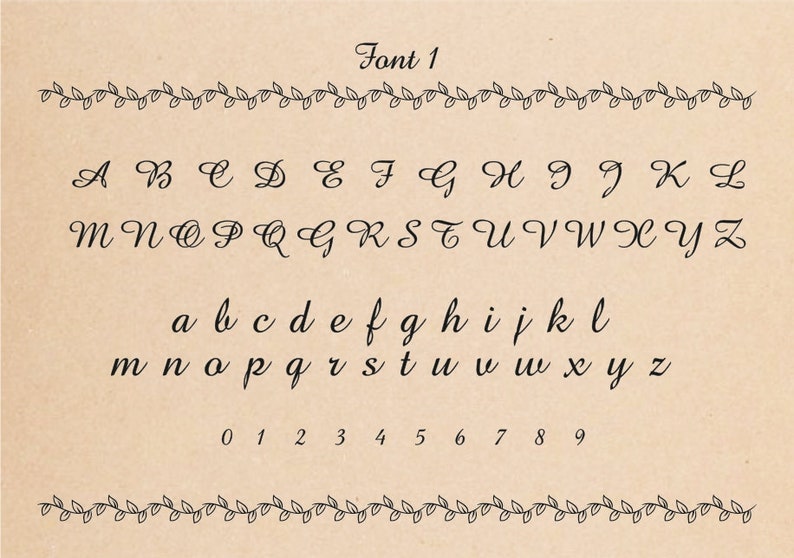 Font 1
A B C D E F G H I J K L
M N O P Q G R S T U V W X Y Z
a b c d e f g h i j k l
m n o p q r s t u v w x y z
0 1 2 3 4 5 6 7 8 9